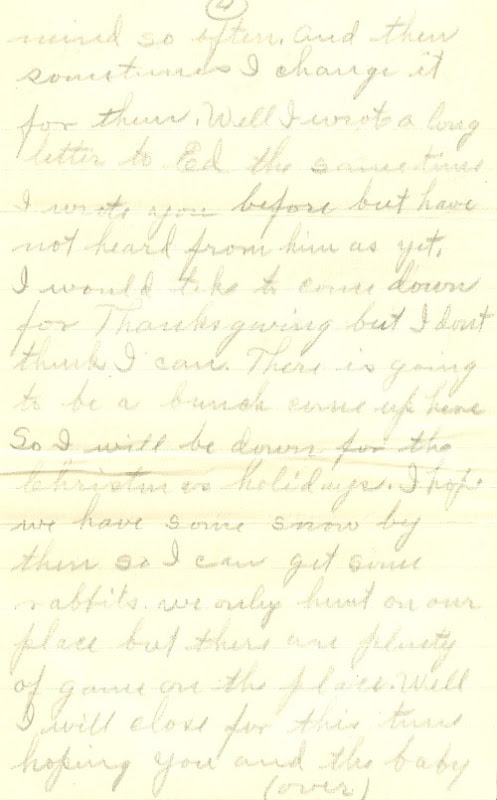 4
mind so often. and then
sometimes I change it
for them. Well I wrote a long
letter to Ed the same time
I wrote you before but have
not heard from him as yet.
I would like to come down
for Thanksgiving but I dont
think I can. There is going
to be a bunch come up here
So I will be down for the
Christmas holidays. I hope
we have some snow by
then so I can get some
rabbits. we only hunt on our
place but there are plenty
of game on the place. Well
I will close for this time
hoping you and the baby
(over)